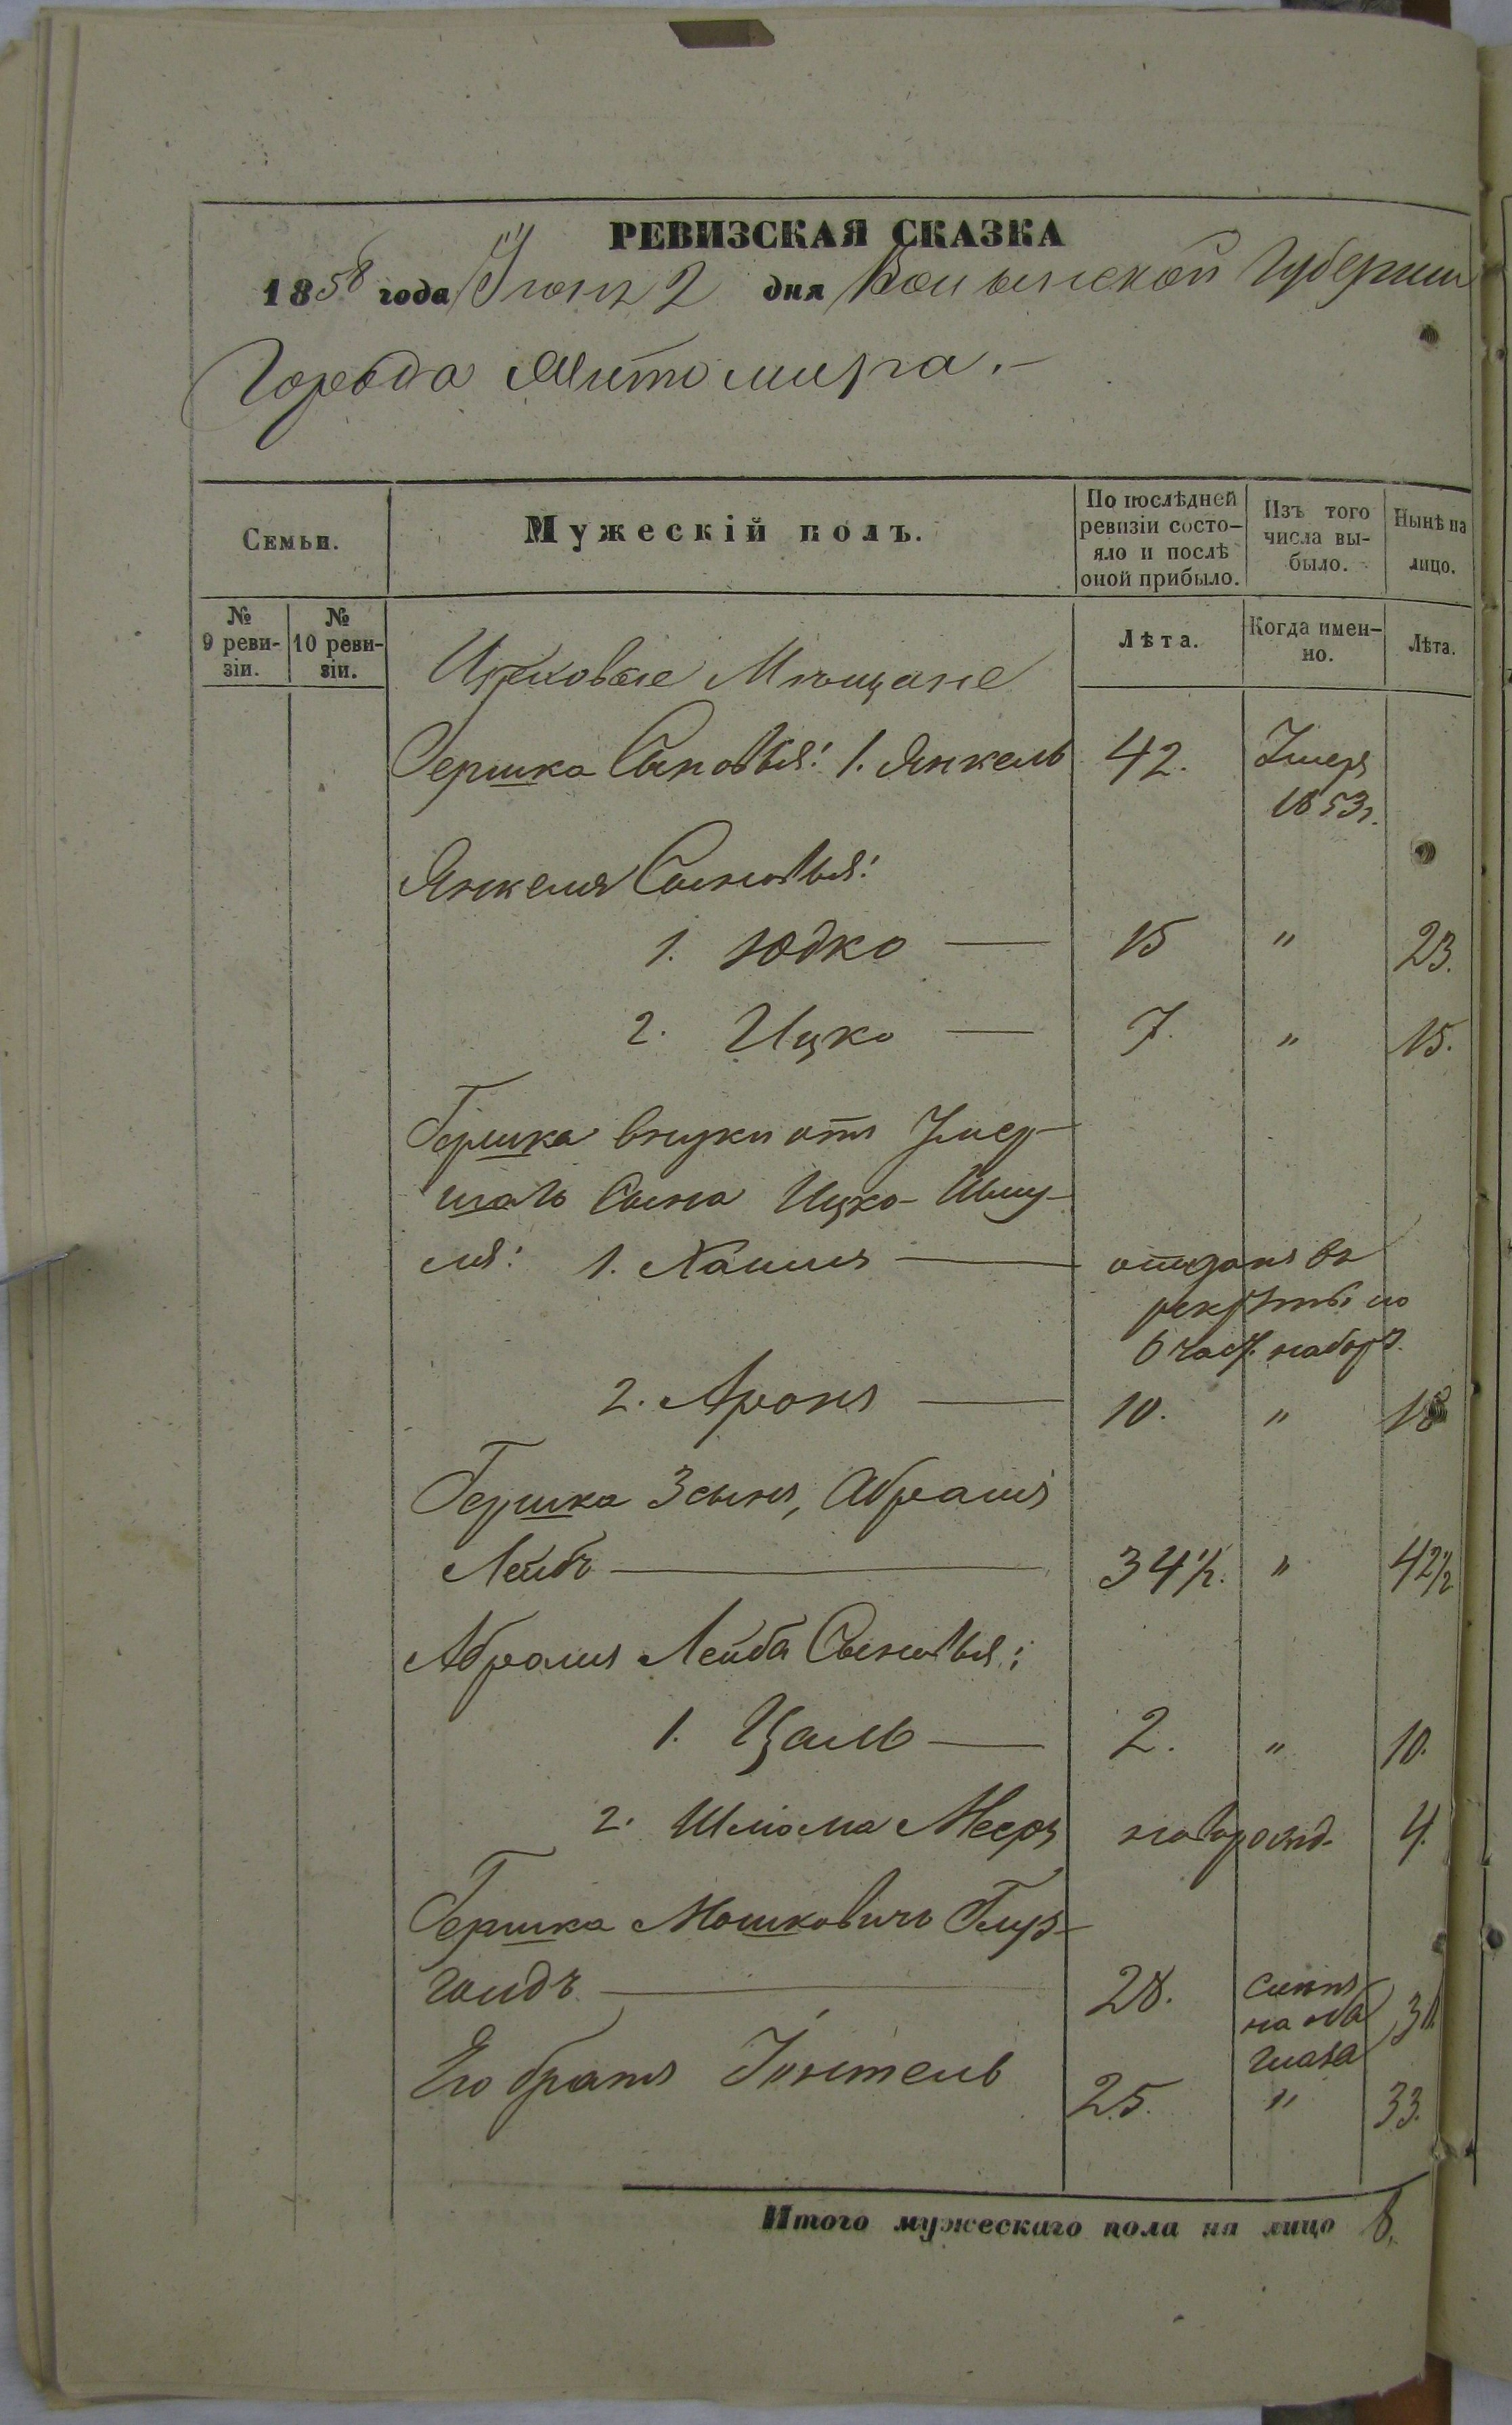 РЕВИЗСКАЯ СКАЗКА
1858 года Іюня 2 дня Волынской Губернiи
Города Житомира.
Семьи.
Мужескій полъ.
По послѣдней ревизіи состо-
яло и послѣ
оной прибыло.
Изъ того
числа вы-
было.
Нынѣ на
лицо.
№
9 реви-
зіи.
№
10 реви-
зіи.
Лѣта.
Когда имен-
но.
Лѣта.
Цеховые Мѣщане
Гершка Сыновья: 1. Янкель 42. Умеръ
1853г.
Янкеля Сыновья:
1. Юдко — 15 " 23.
2. Ицко — 7. " 15.
Гершка внуки отъ Умер-
шаго Сына Ицко-Шму-
ля: 1. Хаимъ — отданъ въ
рекруты по
6 част. набору.
2. Аронъ — 10. " 18
Гершка 3 сынъ, Абрамъ
Лейбъ — 34½. " 42½
Абрама Лейба Сыновья:
1. Цаль — 2. " 10.
2. Шліома Мееръ новорожд. 4.
Гершка Мошковичъ
28. слепъ
на оба
глаза
Его братъ 25. " 33.
Итого мужескаго пола на лицо 8.